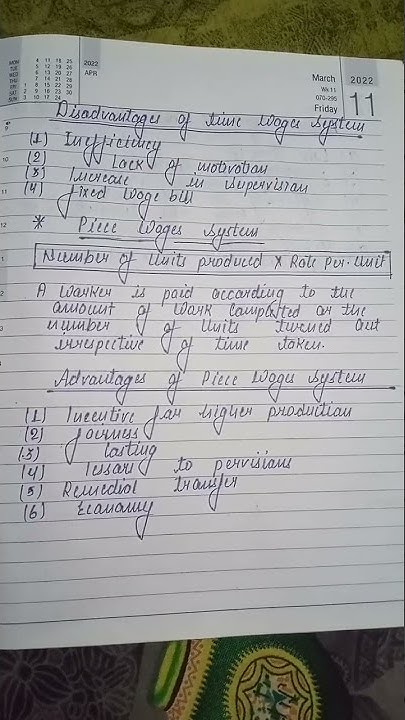 MON 4 11 18 25
TUE 5 12 19 26
WED 6 13 20 27
THU 7 14 21 28
FRI 1 8 15 22 29
SAT 2 9 16 23 30
SUN 3 10 17 24
2022
APR
March
Wk 11
070-295
Friday
2022
11
Disadvantages of time Wages System
9
(1) Inefficiency
10
(2) Lack of motivation
(3) Increase in supervision
11
(4) fixed wage bill
12
* Piece Wages System
1
Number of Units produced X Rate Per. Unit
2
A Worker is paid according to the
amount of Work Completed or the
3
number of Units turned out
irrespective of time taken.
4
Advantages of Piece Wages System
(1) Incentive for higher production
(2) fairness
(3) Costing
(4) to
(5) Remedial transfer
(6) Economy